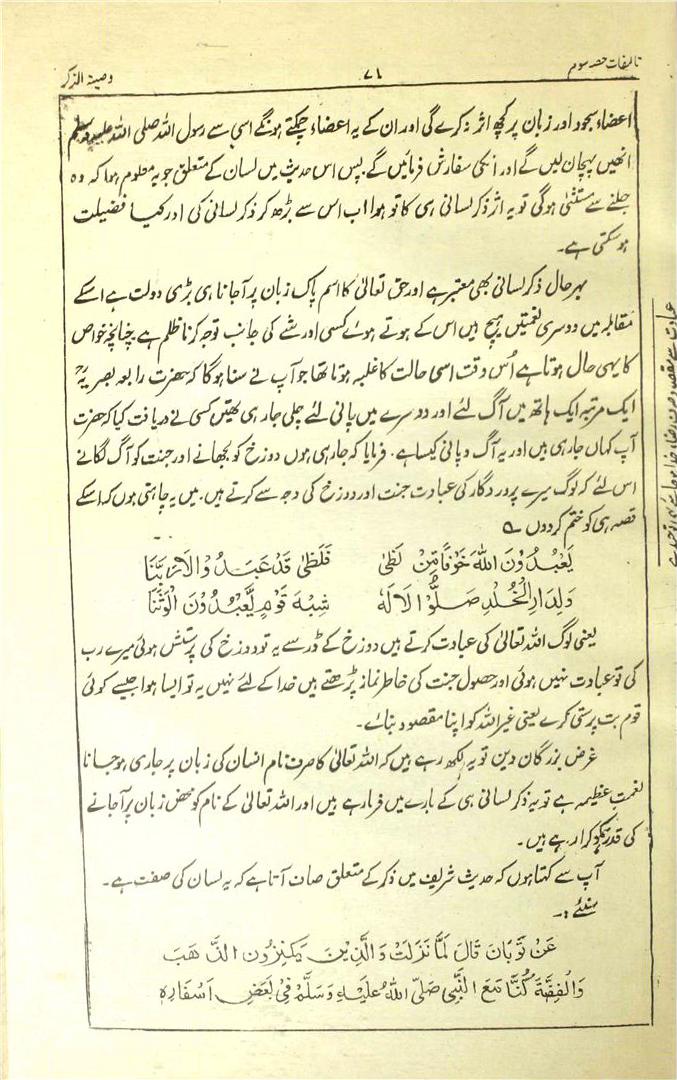 تالیفات حصہ سوم
۷۱
وصیۃ الذکر
اعضاء سجود اور زبان پر کچھ اثر نہ کرے گی اور ان کے یہ اعضاء چمکتے ہونگے اسی سے رسول اللہ صلی اللہ علیہ وسلم
انھیں پہچان لیں گے اور انکی سفارش فرمائیں گے۔ پس اس حدیث میں لسان کے متعلق جو یہ معلوم ہوا کہ وہ
جلنے سے مستثنیٰ ہوگی تو یہ اثر ذکر لسانی ہی کا تو ہوا اب اس سے بڑھ کر ذکر لسانی کی اور کیا فضیلت
ہوسکتی ہے۔
بہر حال ذکر لسانی بھی معتبر ہے اور حق تعالیٰ کا اسم پاک زبان پر آجانا ہی بڑی دولت ہے اسکے
مقابلہ میں دوسری نعمتیں ہیچ ہیں اس کے ہوتے ہوئے کسی اور شے کی جانب توجہ کرنا ظلم ہے چنانچہ خواص
کا یہی حال ہوتا ہے اُس وقت اسی حالت کا غلبہ ہوتا تھا جو آپ نے سنا ہوگا کہ حضرت رابعہ بصریہؒ
ایک مرتبہ ایک ہاتھ میں آگ لئے اور دوسرے میں پانی لئے چلی جارہی تھیں کسی نے دریافت کیا کہ حضرت
آپ کہاں جارہی ہیں اور یہ آگ و پانی کیسا ہے۔ فرمایا کہ جارہی ہوں دوزخ کو بجھانے اور جنت کو آگ لگانے
اس لئے کہ لوگ میرے پروردگار کی عبادت جنت اور دوزخ کی وجہ سے کرتے ہیں۔ میں یہ چاہتی ہوں کہ اسکے
قصہ ہی کو ختم کردوں ؎
یَعْبُدُوْنَ اللّٰہَ خَوْفًا مِّنْ لَظٰی فَلَظٰی قَدْ عَبَدُوْا لَا رَبَّنَا
وَلِدَارِ الْخُلْدِ صَلُّوْا لَا لَہٗ شِبْہَ قَوْمٍ یَّعْبُدُوْنَ الْوَثَنَا
یعنی لوگ اللہ تعالیٰ کی عبادت کرتے ہیں دوزخ کے ڈر سے یہ تو دوزخ کی پرستش ہوئی میرے رب
کی تو عبادت نہیں ہوئی اور حصول جنت کی خاطر نماز پڑھتے ہیں خدا کے لئے نہیں یہ تو ایسا ہوا جیسے کوئی
قوم بت پرستی کرے یعنی غیر اللہ کو اپنا مقصود بنائے۔
غرض بزرگان دین تو یہ لکھ رہے ہیں کہ اللہ تعالیٰ کا صرف نام انسان کی زبان پر جاری ہوجانا
نعمت عظیمہ ہے تو یہ ذکر لسانی ہی کے بارے میں فرمارہے ہیں اور اللہ تعالیٰ کے نام کو محض زبان پر آجانے
کی قدر ہمکو کرا رہے ہیں۔
آپ سے کہتا ہوں کہ حدیث شریف میں ذکر کے متعلق صاف آتا ہے کہ یہ لسان کی صفت ہے۔
سنئے :۔
عَنْ ثَوْبَانَ قَالَ لَمَّا نَزَلَتْ وَالَّذِیْنَ یَکْنِزُوْنَ الذَّھَبَ
وَالْفِضَّۃَ کُنَّا مَعَ النَّبِیِّ صَلَّی اللّٰہُ عَلَیْہِ وَسَلَّمَ فِیْ بَعْضِ اَسْفَارِہٖ
عبادت سے مقصود صرف رضاء خدا